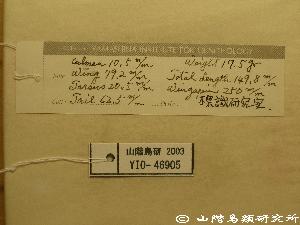 YAMASHINA INSTITUTE FOR ORNITHOLOGY
Culmen 10.5 m/m Weight 17.5 gr
Wing 79.2 m/m Total length 149.8 m/m
Tarsus 20.5 m/m Wingspan 250 m/m
Tail 62.5 m/m 標識研究室
山階鳥研 2003
YIO-46905
© 山階鳥類研究所